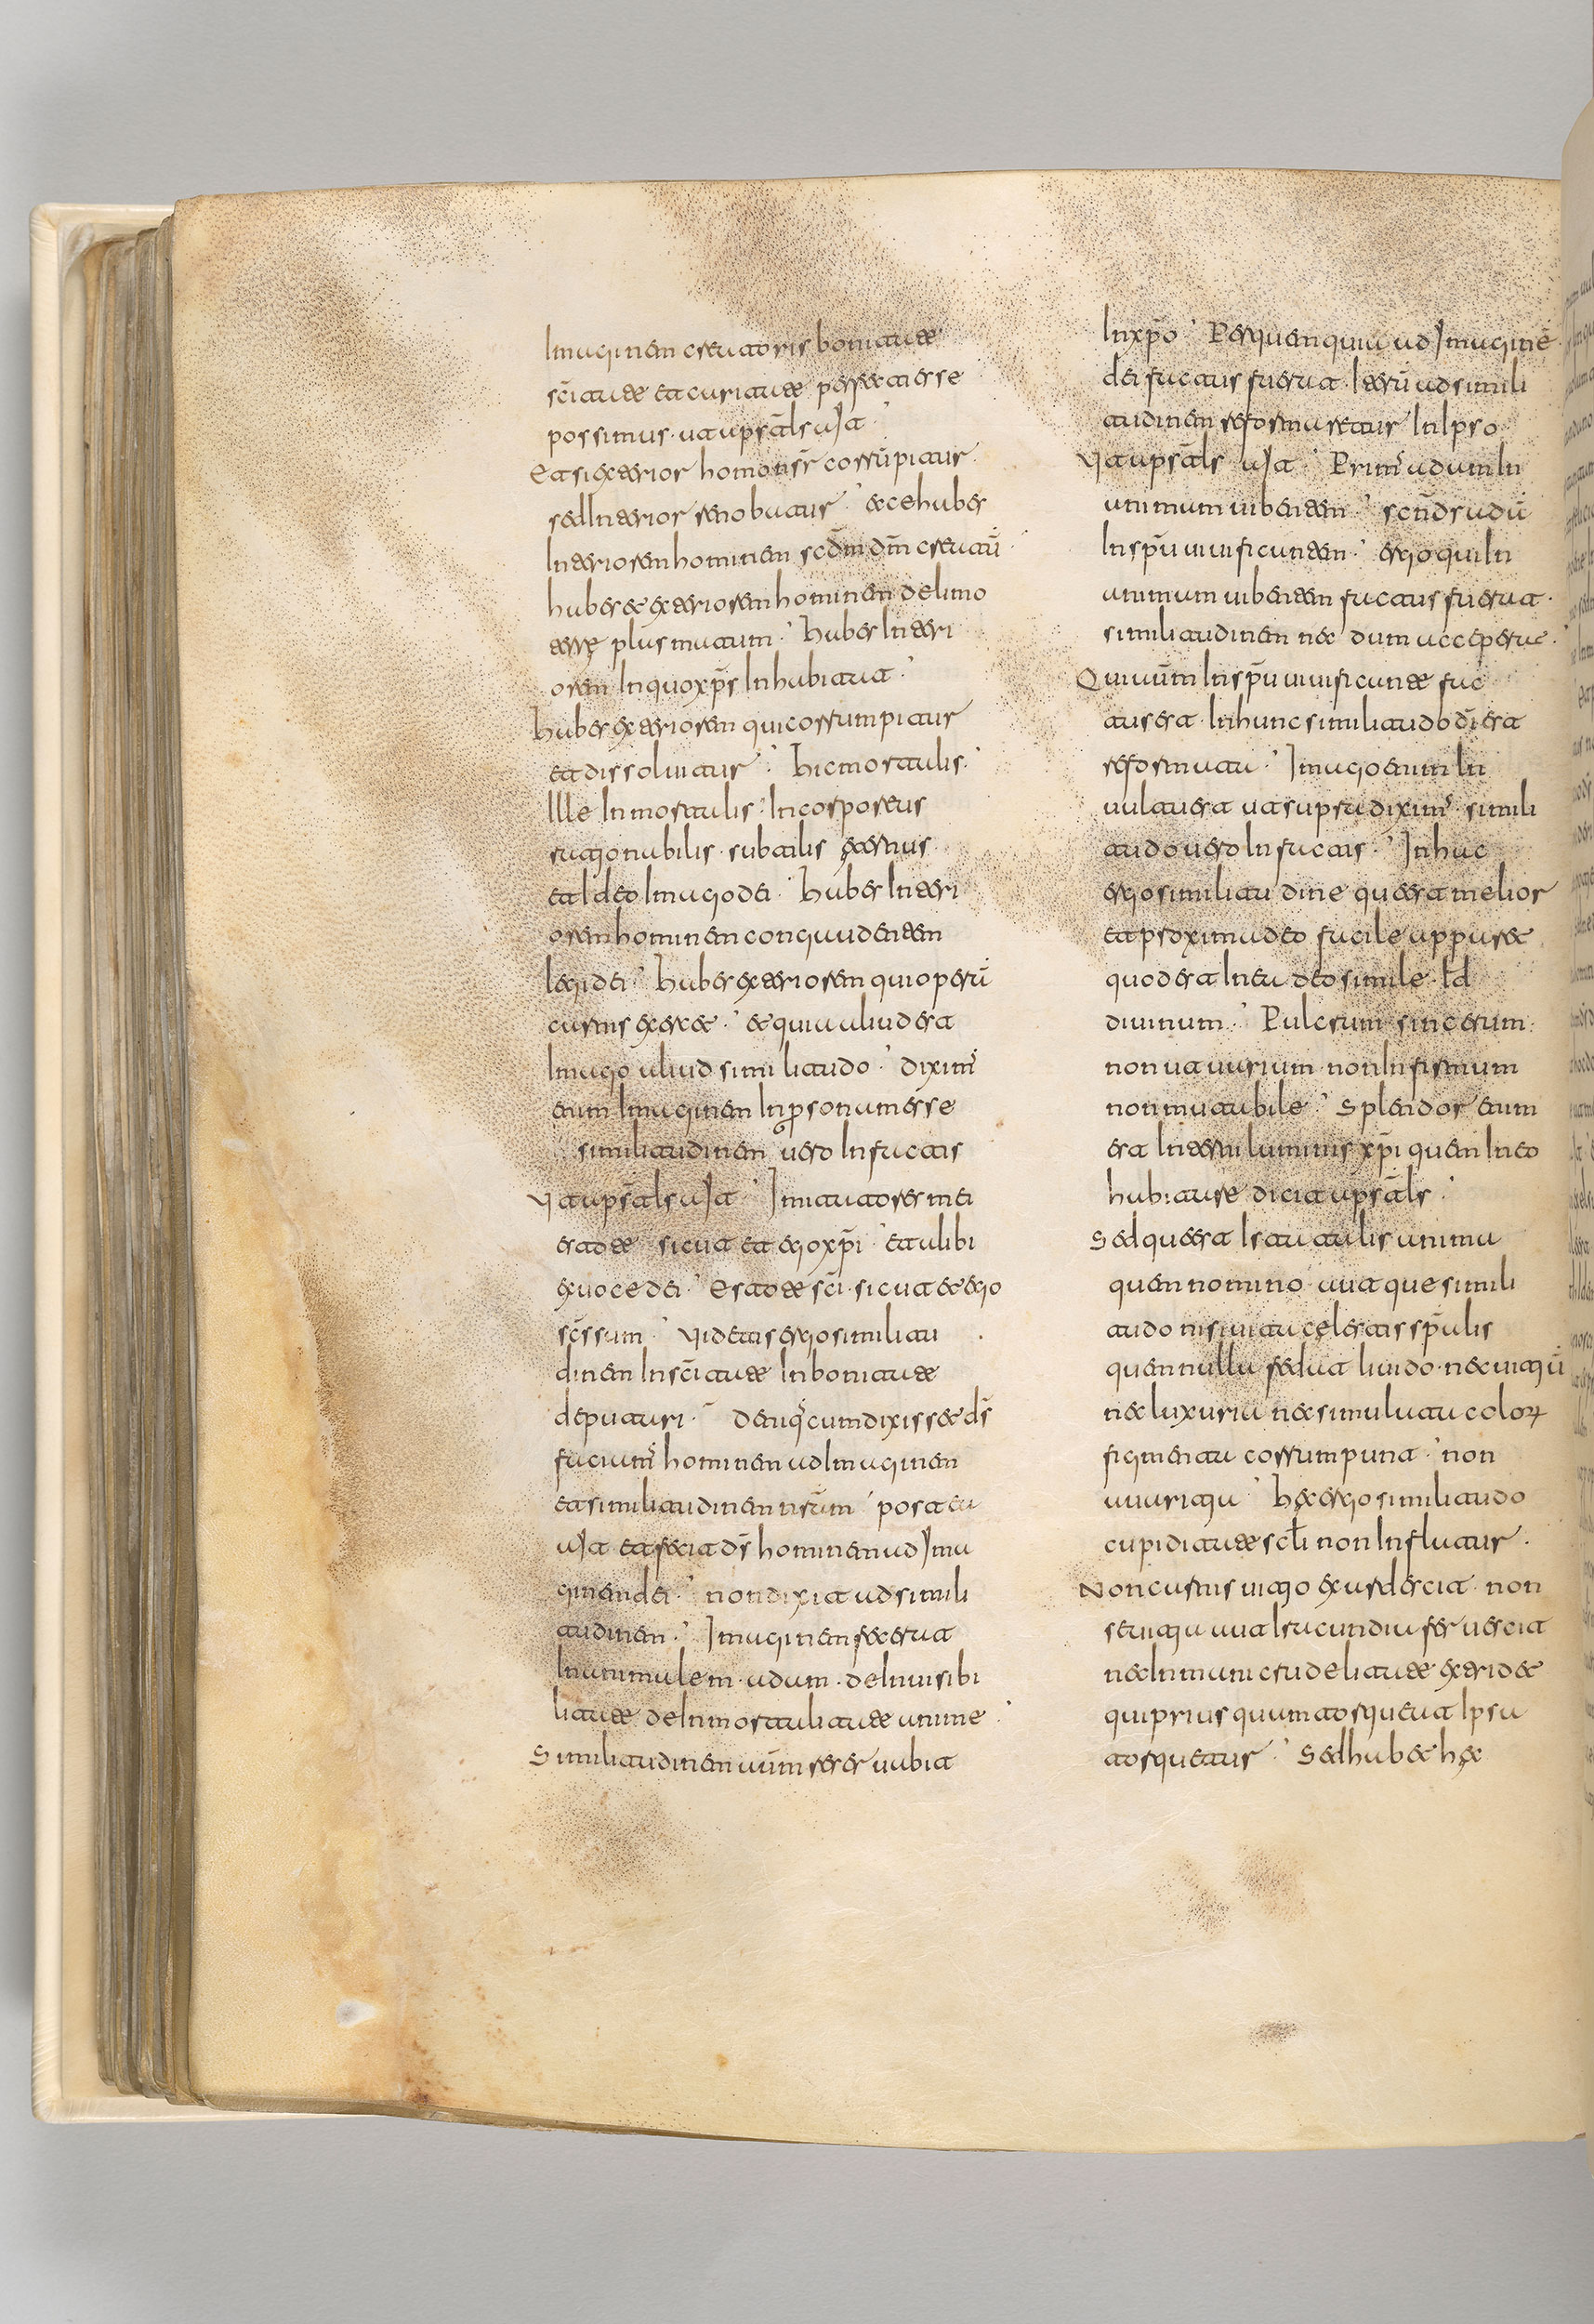 Imaginem creatoris bonitate
sc̄itate et caritate perfecti esse
possimus · ut aps̄tls ait ·
Et si exterior homo nsr̄ corrūpitur
sed Interior renobatur · ecce habes
Interiorem hominem scd̄m dm̄ creatū
habes et exteriorem hominem de limo
terre plasmatum · habes Interi
orem In quo xp̄s Inhabitat ·
habes exteriorem qui corrumpitur
et dissoluitur · hic mortalis ·
Ille Inmortalis · Incorporeus
rationabilis · subtilis ęternus
et Ideo Imago dei · habes Interi
orem hominem congaudentem
legi dei · habes exteriorem qui operā
carnis exercet · et quia aliud est
Imago aliud similitudo · dixim'
enim Imaginem In psonam esse
similitudinem uero In factis
Ut aps̄tls ait · Imitatores mei
estote sicut et ego xp̄i · et alibi
ex uoce dei · Estote sc̄i · sicut et ego
sc̄s sum · Uidetis ergo similitu
dinem In sc̄itate In bonitate
deputari · deniq' cum dixisset ds̄
faciam' hominem ad Imaginem
et similitudinem nsr̄am · postea
ait et fecit ds̄ hominem ad Ima
ginem dei · non dixit ad simili
tudinem · Imaginem fecerat
In animalem · adam · de Inuisibi
litate de Inmortalitate anime ·
Similitudinem aūm reseruabit
In xp̄o · Per quem quia ad Imaginē
dei factus fuerat · Iterū ad simili
tudinem reformaretur In Ipso
Ut aps̄tls ait · Prim' adam In
animam uibentem · scn̄ds adā
In spū uiuificantem · ergo qui In
animam uibentem factus fuerat ·
similitudinem nec dum acceperat ·
Qui aūm In spū uiuificante fac
tus est · In hunc similitudo dī est
reformata · Imago enim In
adulta est ut supra dixim' · simili
tudo uero In factis · In hac
ergo similitudine que est melior
et proxima deo facile apparet
quod est In ea deo simile · Id
diuinum · Pulcrum sincerum ·
non ut aurium non Infirmum
non mutabile · Splendor enim
est Interni luminis xp̄i quem In eo
habitare dicit aps̄tls ·
Sed que est Ista talis anima
quem nomino aut que simili
tudo nisi uita celestis spūlis
quem nulla fedat liuido · nec uitiū
nec luxuria nec simulata coloꝝ
figmenta corrumpunt · non
auaritia · hec ergo similitudo
cupiditate scłi non Inflatur ·
Non carnis uitio exardescit · non
seuitia aut Iracundia feruescit
nec In mani crudelitate extridet
qui prius quam torqueat Ipsa
torquetur · Sed habet hec